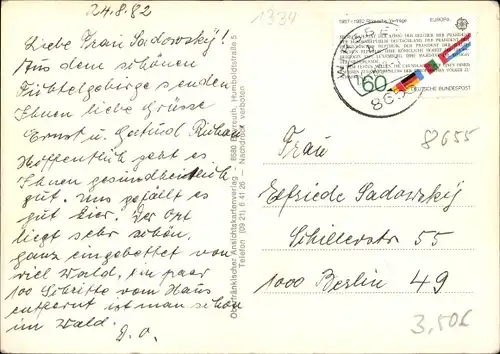 24.8.82
Liebe Frau Sadowsky!
Aus dem schönen
Fichtelgebirge senden
Ihnen liebe Grüsse
Ernst u. Gertrud
Hoffentlich geht es
Ihnen gesundheitlich
gut. Uns gefällt es
gut hier. Der Ort
liegt sehr schön,
ganz eingebettet von
viel Wald. Ein paar
100 Schritte vom Haus
entfernt ist man schon
im Wald.
D. O.
Oberfränkischer Ansichtskartenverlag · 8580 Bayreuth, Humboldtstraße 5
Telefon (09 21) 6 41 26 — Nachdruck verboten
1334
1957-1982 Römische Verträge EUROPA
60
DEUTSCHE BUNDESPOST
8655
Frau
Elfriede Sadowsky
Schillerstr 55
1000 Berlin 49
3,50€